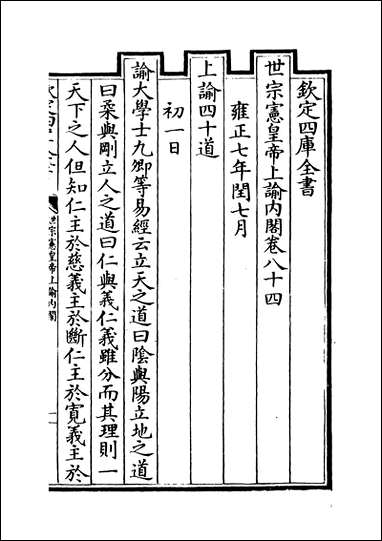 欽定四庫全書
世宗憲皇帝上諭内閣卷八十四
雍正七年閏七月
上諭四十道
初一日
諭大學士九卿等易經云立天之道曰陰與陽立地之道
曰柔與剛立人之道曰仁與義仁義雖分而其理則一
天下之人但知仁主於慈義主於斷仁主於寛義主於
世宗憲皇帝上諭内閣